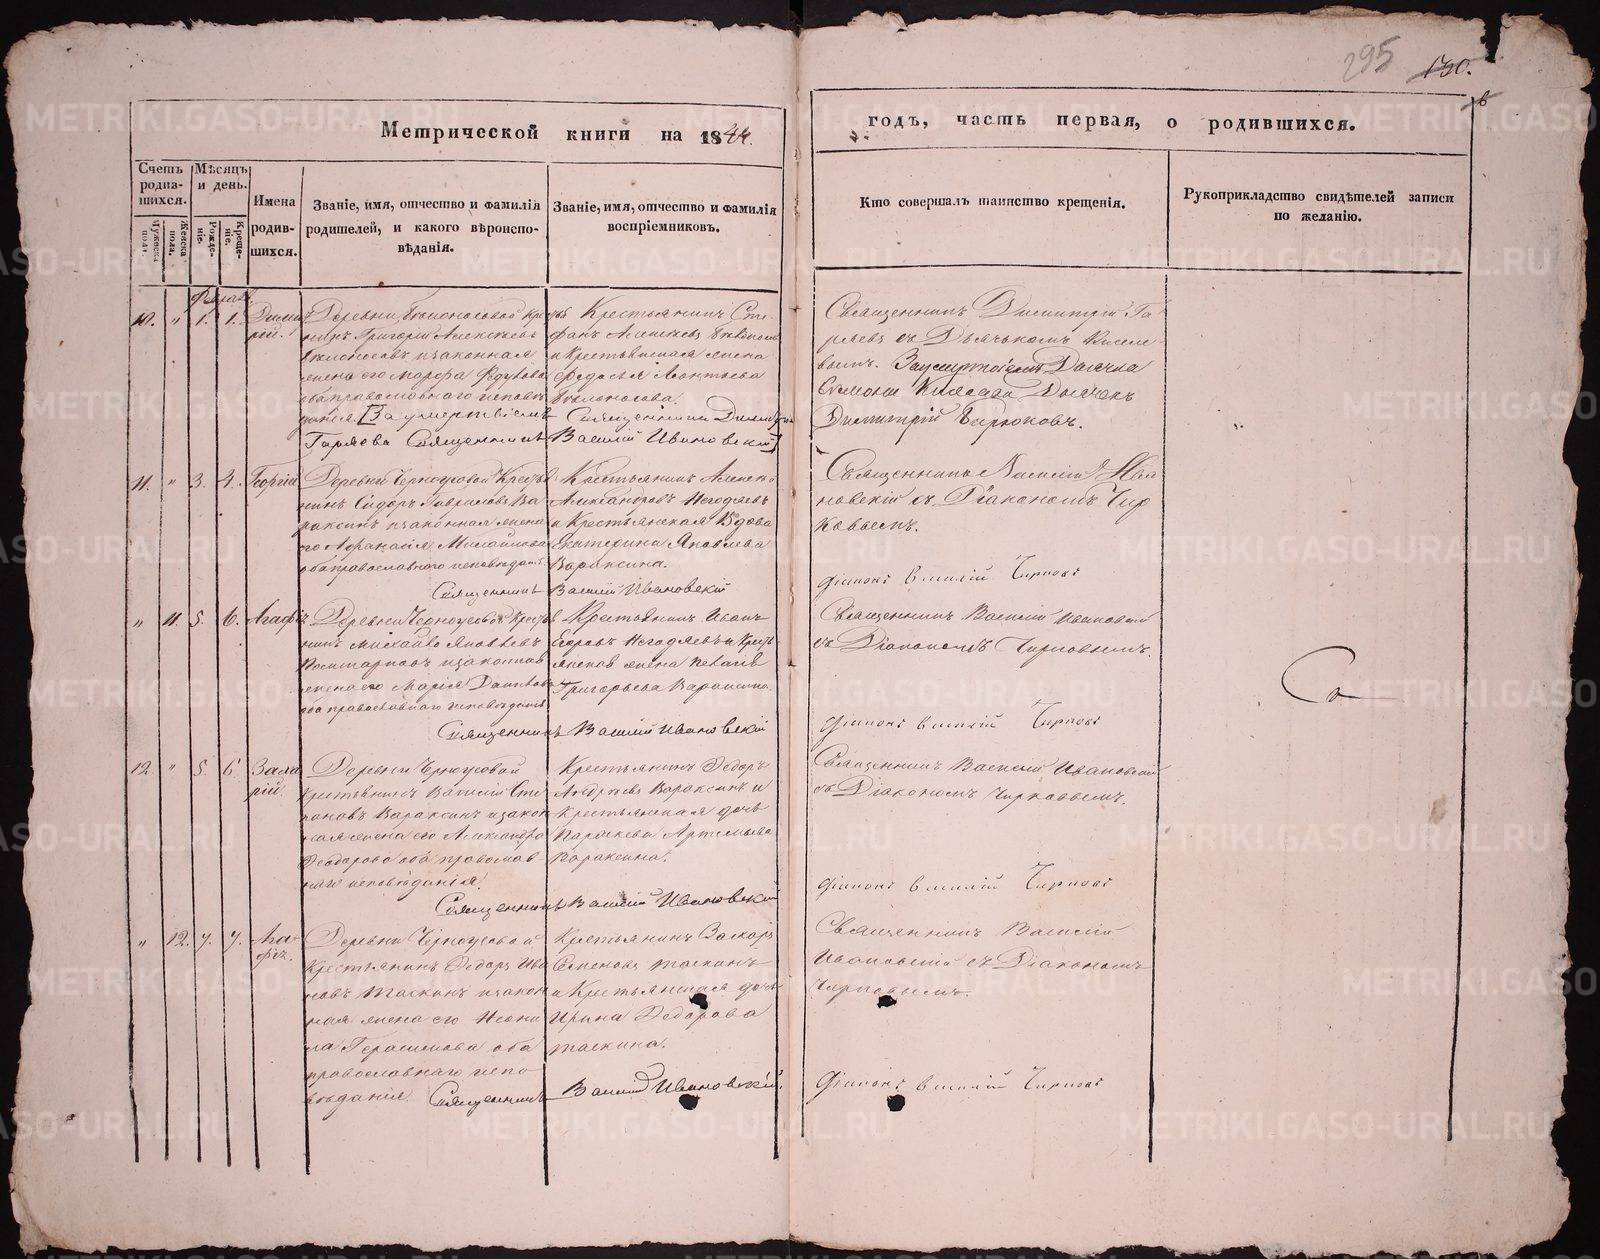 295 130.
Метрической книги на 1844.
годъ, часть первая, о родившихся.
Счетъ родив-шихся.
Мѣсяцъ и день.
Имена родив-шихся.
Званіе, имя, отчество и фамилія
родителей, и какого вѣроиспо-
вѣданія.
Званіе, имя, отчество и фамилія
воспріемниковъ.
Кто совершалъ таинство крещенія.
Рукоприкладство свидѣтелей записи
по желанію.
Мужеска пола.
Женска пола.
Рожде-ніе.
Креще-ніе.
10. " 1. 1.
Деревни
Григорій Алексѣевъ
и законная
жена его Марфа
оба православнаго исповѣ
данія. [За умертвіемъ
Гаряева Священникъ
Крестьянинъ Сте-
фанъ Алексѣевъ
и Крестьянская жена
Федосья Леонтьева
Бѣлоносова.
Священника Димитрія
Василій Ивановскій]
Священникъ Димитрій Га-
ряевъ съ Дьячкомъ Кисе-
вымъ. За умертвіемъ Дьячка
Дьячекъ
Димитрій Бирюковъ.
11. " 3. 4. Георгій
Деревни Черноусовой Кресть
нинъ Сидоръ Гавриловъ Ва
раксинъ и законная жена
его Афанасія Михайлова
оба православнаго исповѣданія.
Священникъ
Крестьянинъ Алексѣй
Александровъ Негодяевъ
и Крестьянская Вдова
Екатерина Яковлева
Вараксина.
Василій Ивановскій
Священникъ Василій Ива
новскій съ Діакономъ Чир
ковымъ.
Діаконъ Василій Чирковъ
" 11. 5. 6. Агафія
Деревни Черноусовой Кресть
нинъ Михайло Яковлевъ
и законная
жена его Марія
оба православнаго исповѣданія
Священникъ
Крестьянинъ Иванъ
Егоровъ Негодяевъ и Кресть
янская жена
Григорьева Вараксина.
Василій Ивановскій
Священникъ Василій Ивановскій
съ Діакономъ Чирковымъ.
Діаконъ Василій Чирковъ
12. " 5. 6
Деревни Черноусовой
Крестьянинъ Василій Сте
пановъ Вараксинъ и закон
ная жена его Александра
Ѳеодорова оба православ-
наго исповѣданія.
Священникъ
Крестьянинъ Ѳедоръ
Андреевъ Вараксинъ и
Крестьянская дочь
Параскева Артемьева
Вараксина.
Василій Ивановскій
Священникъ Василій Ивановскій
съ Діакономъ Чирковымъ.
Діаконъ Василій Чирковъ
" 12. 7. 7. Ага-
фія.
Деревни Черноусовой
Крестьянинъ Ѳедоръ Ива
новъ Таскинъ и закон
ная жена его Неони
ла Герасимова оба
православнаго испо-
вѣданія. Священникъ
Крестьянинъ Захаръ
Семеновъ Таскинъ
и Крестьянская дочь
Ирина Ѳедорова
Таскина.
Василій Ивановскій.
Священникъ Василій
Ивановскій съ Діакономъ
Чирковымъ.
Діаконъ Василій Чирковъ
METRIKI.GASO-URAL.RU